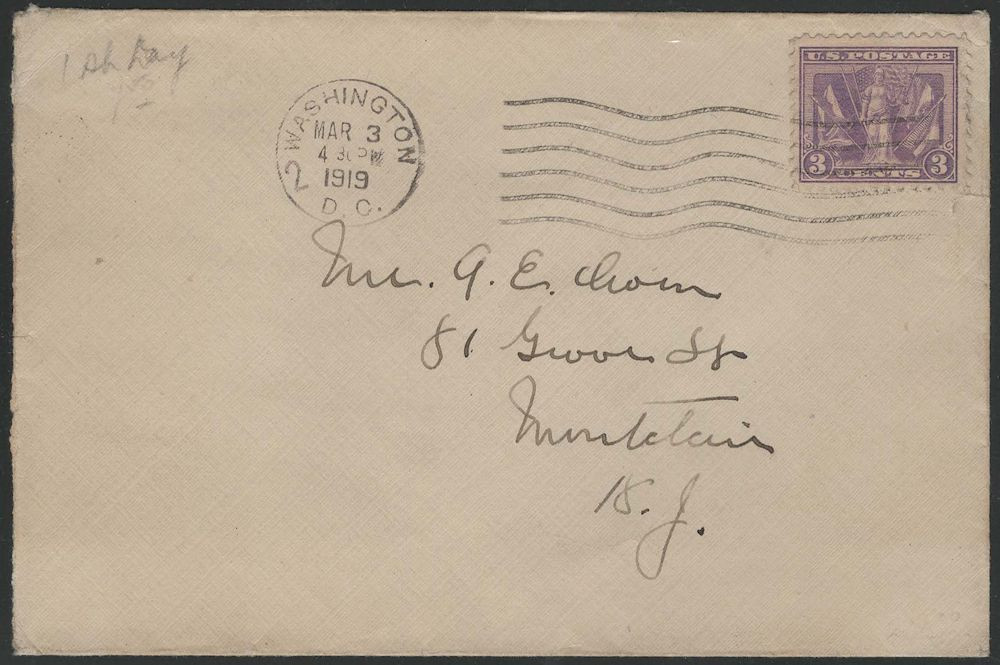 1 st Day
WASHINGTON
MAR 3
4 30 PM
1919
D. C.
2
U.S. POSTAGE
3 CENTS 3
Mr. A. E.
81 Grove St
Montclair
N. J.